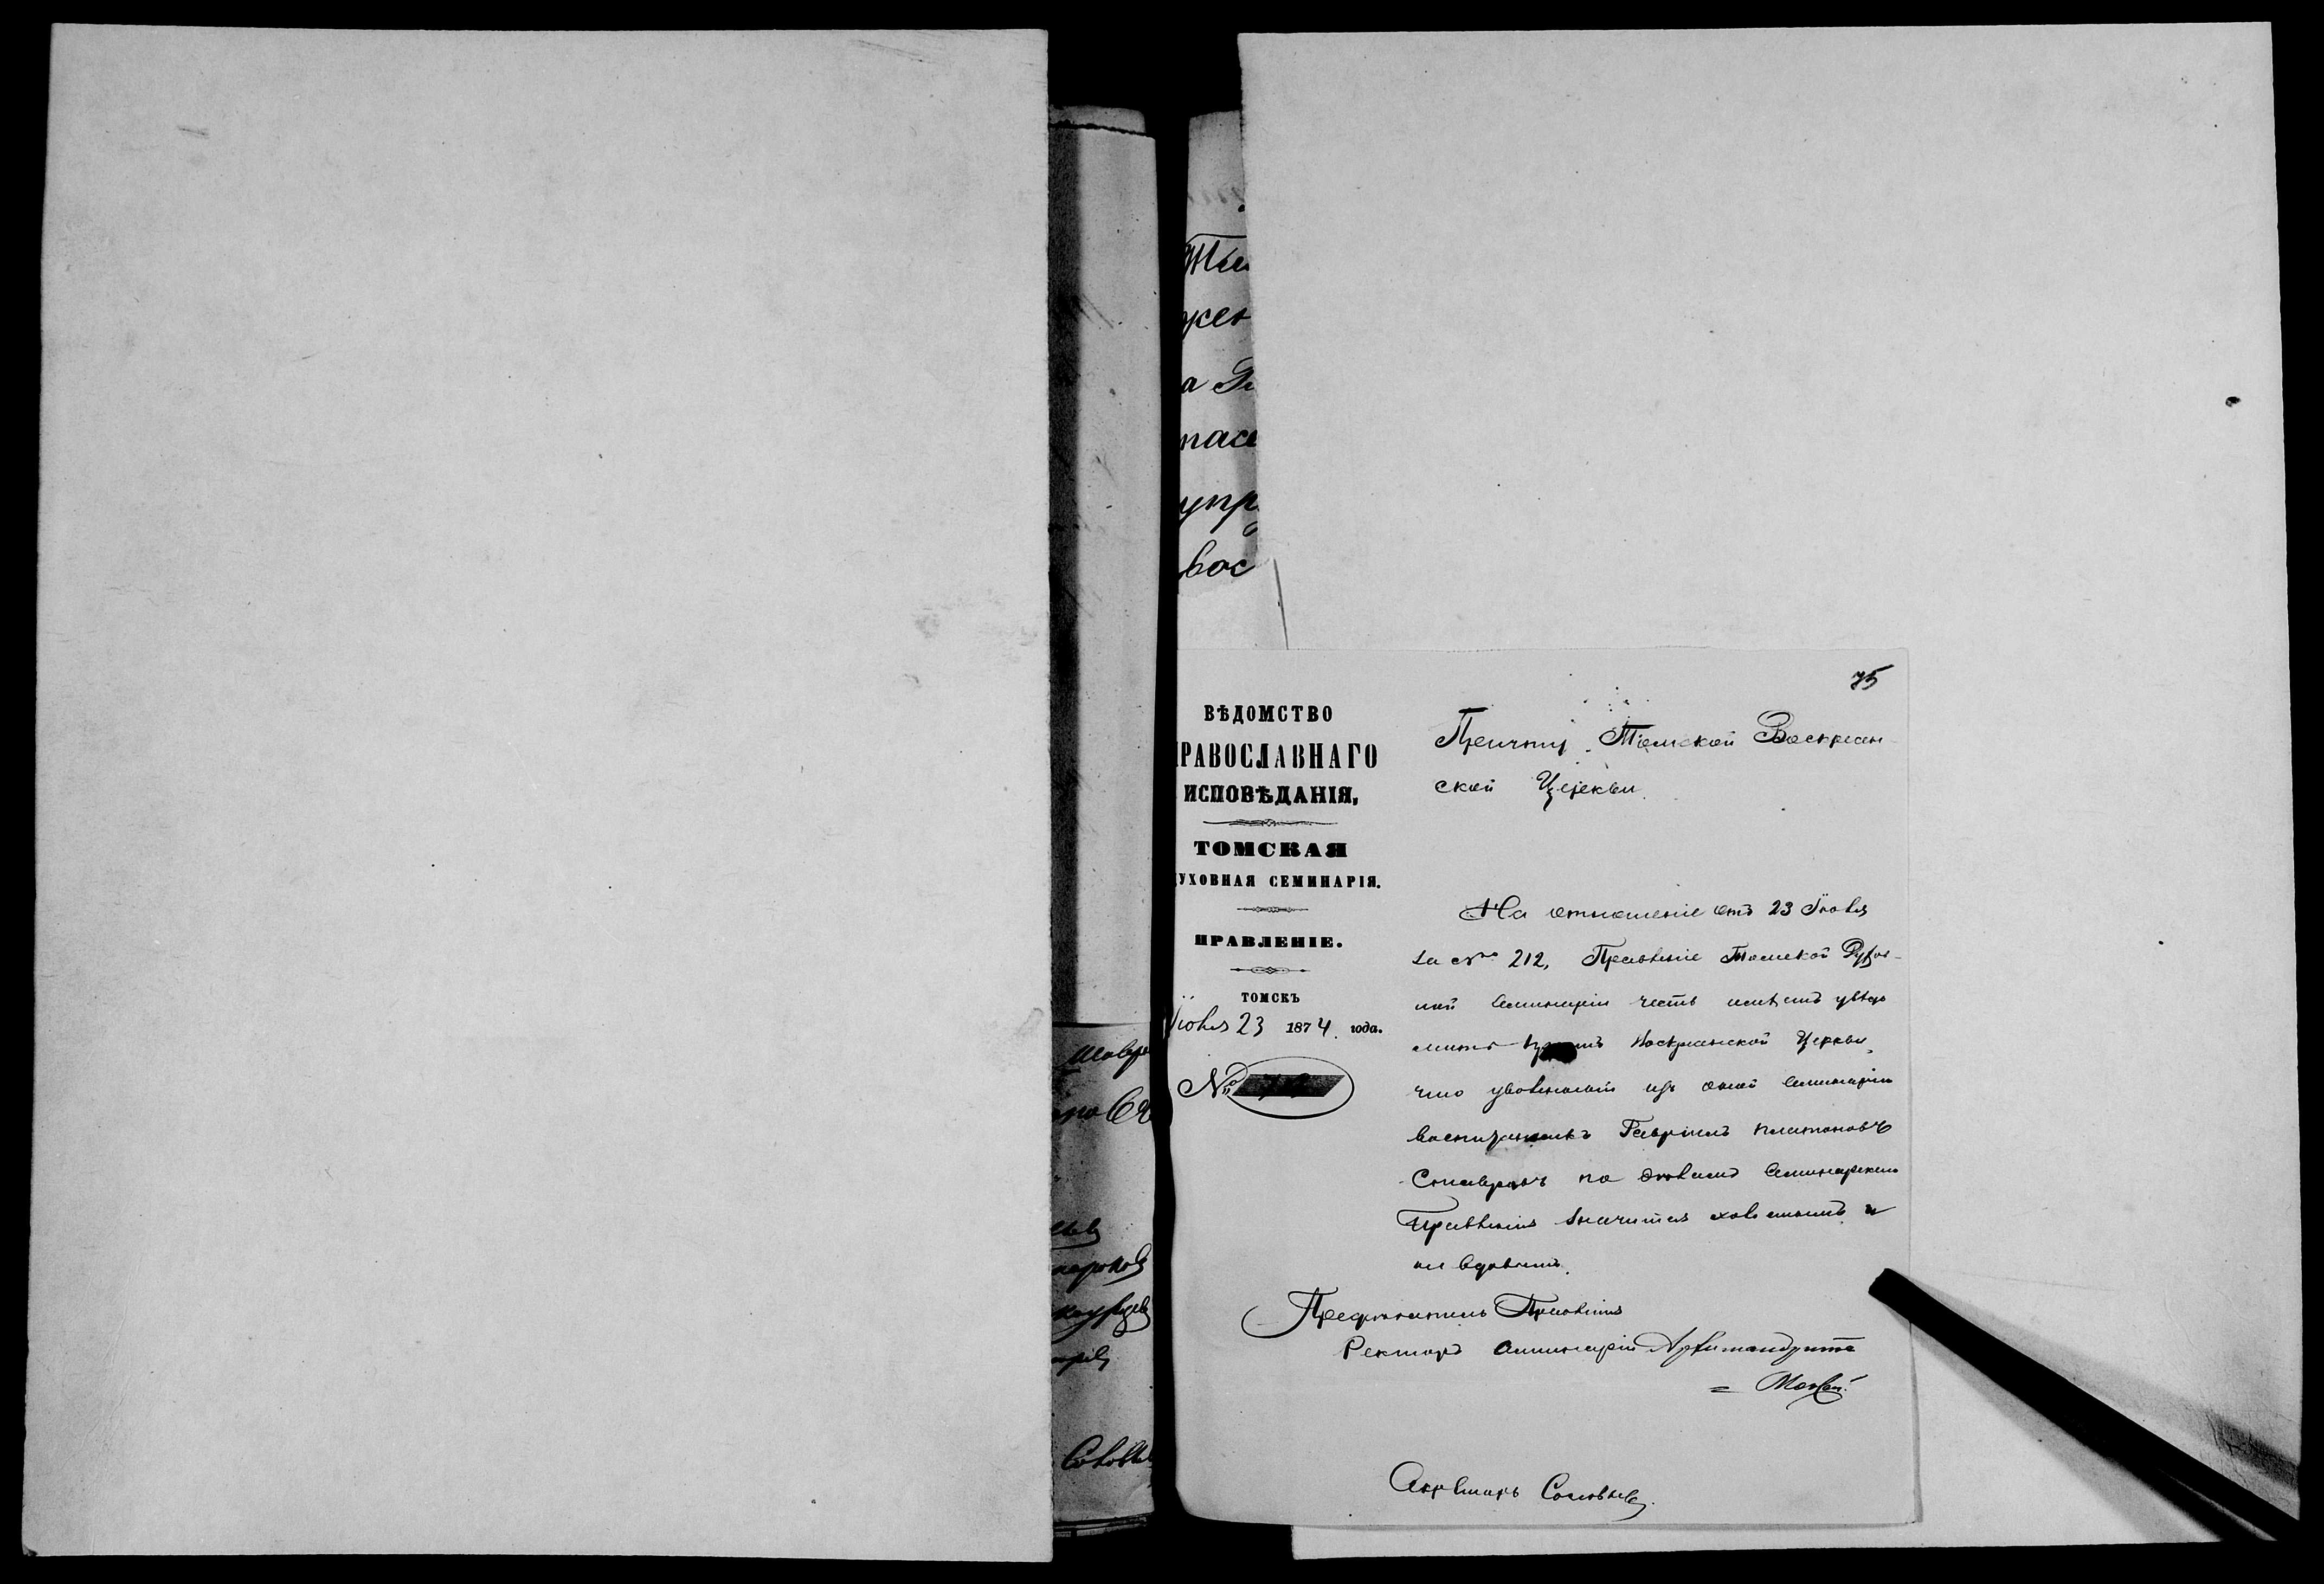 75
ВѢДОМСТВО
ПРАВОСЛАВНАГО
ИСПОВѢДАНІЯ,
ТОМСКАЯ
ДУХОВНАЯ СЕМИНАРІЯ.
ПРАВЛЕНІЕ.
ТОМСКЪ
Іюля 23 1874 года.
№
Причту Томской Воскресен-
ской Церкви.
На отношеніе отъ 23 Іюля
за № 212, Правленіе Томской Духов-
ной Семинаріи честь имѣетъ увѣдо
мить причтъ Воскресенской Церкви,
что уволенный изъ оной Семинаріи
воспитанникъ Гавріилъ Платоновъ
Ставровъ по дѣламъ Семинарскаго
Правленія значится холостымъ и
не вдовымъ.
Предсѣдатель Правленія
Ректоръ Семинаріи Архимандритъ
= Моѵсей.
Секретарь Соловьевъ.